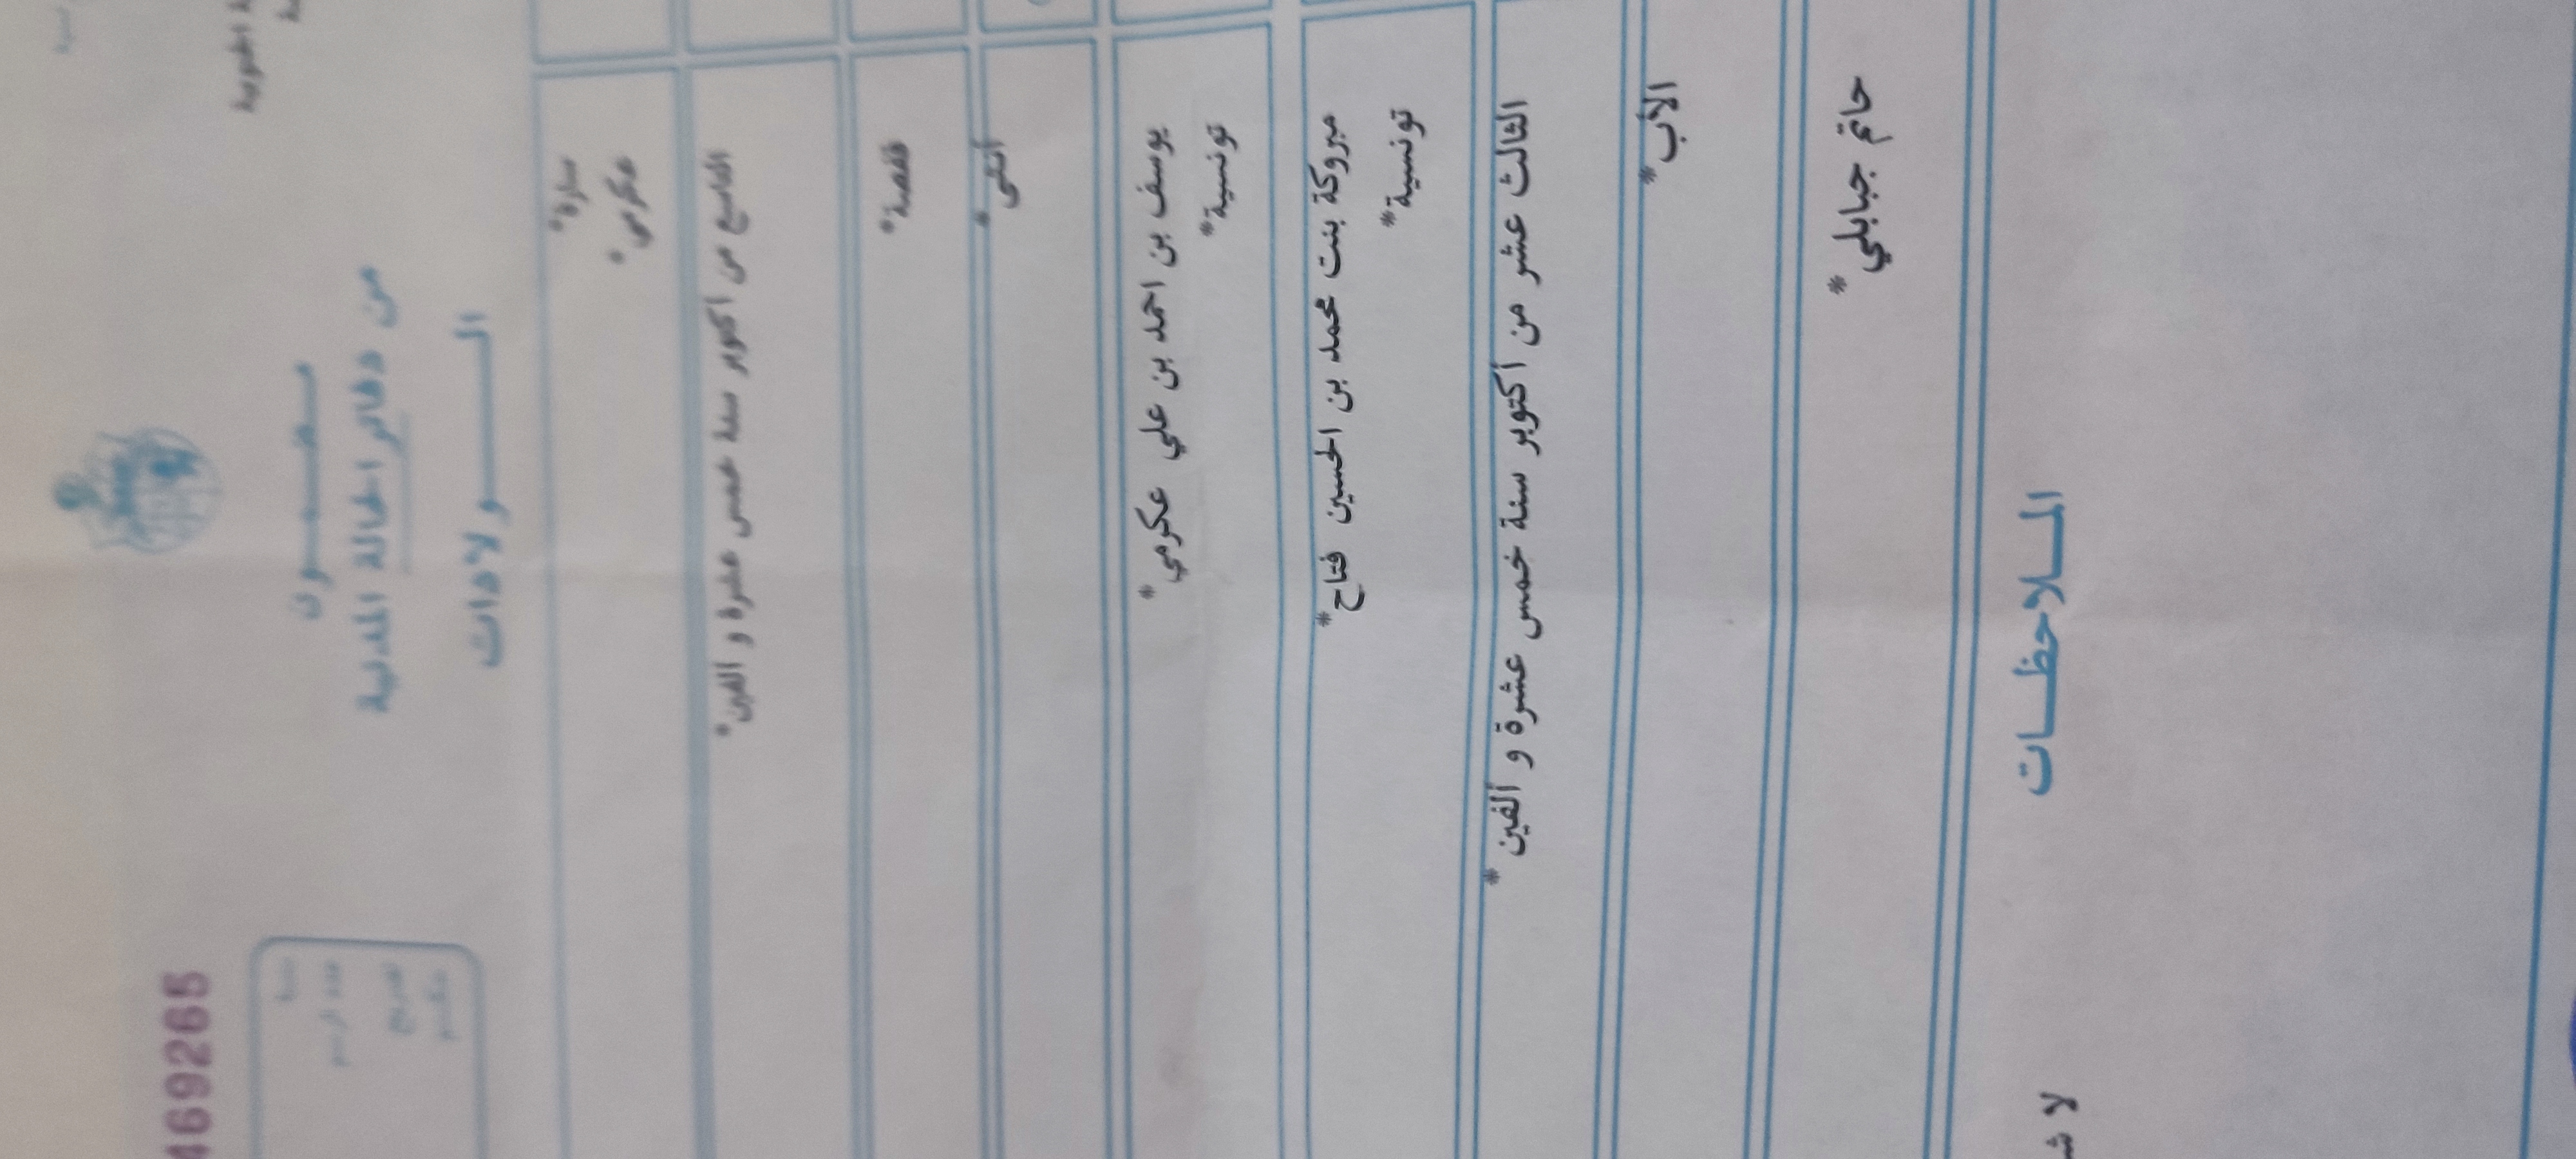 469265
مضمون
من دفاتر الحالة المدنية
الولادات
سارة*
عكرمي*
التاسع من أكتوبر سنة خمس عشرة و ألفين*
قفصة*
أنثى*
يوسف بن احمد بن علي عكرمي*
تونسية*
مبروكة بنت محمد بن الحسين فتاح*
تونسية*
الثالث عشر من أكتوبر سنة خمس عشرة و ألفين*
الأب*
حاتم جبابلي*
الملاحظات